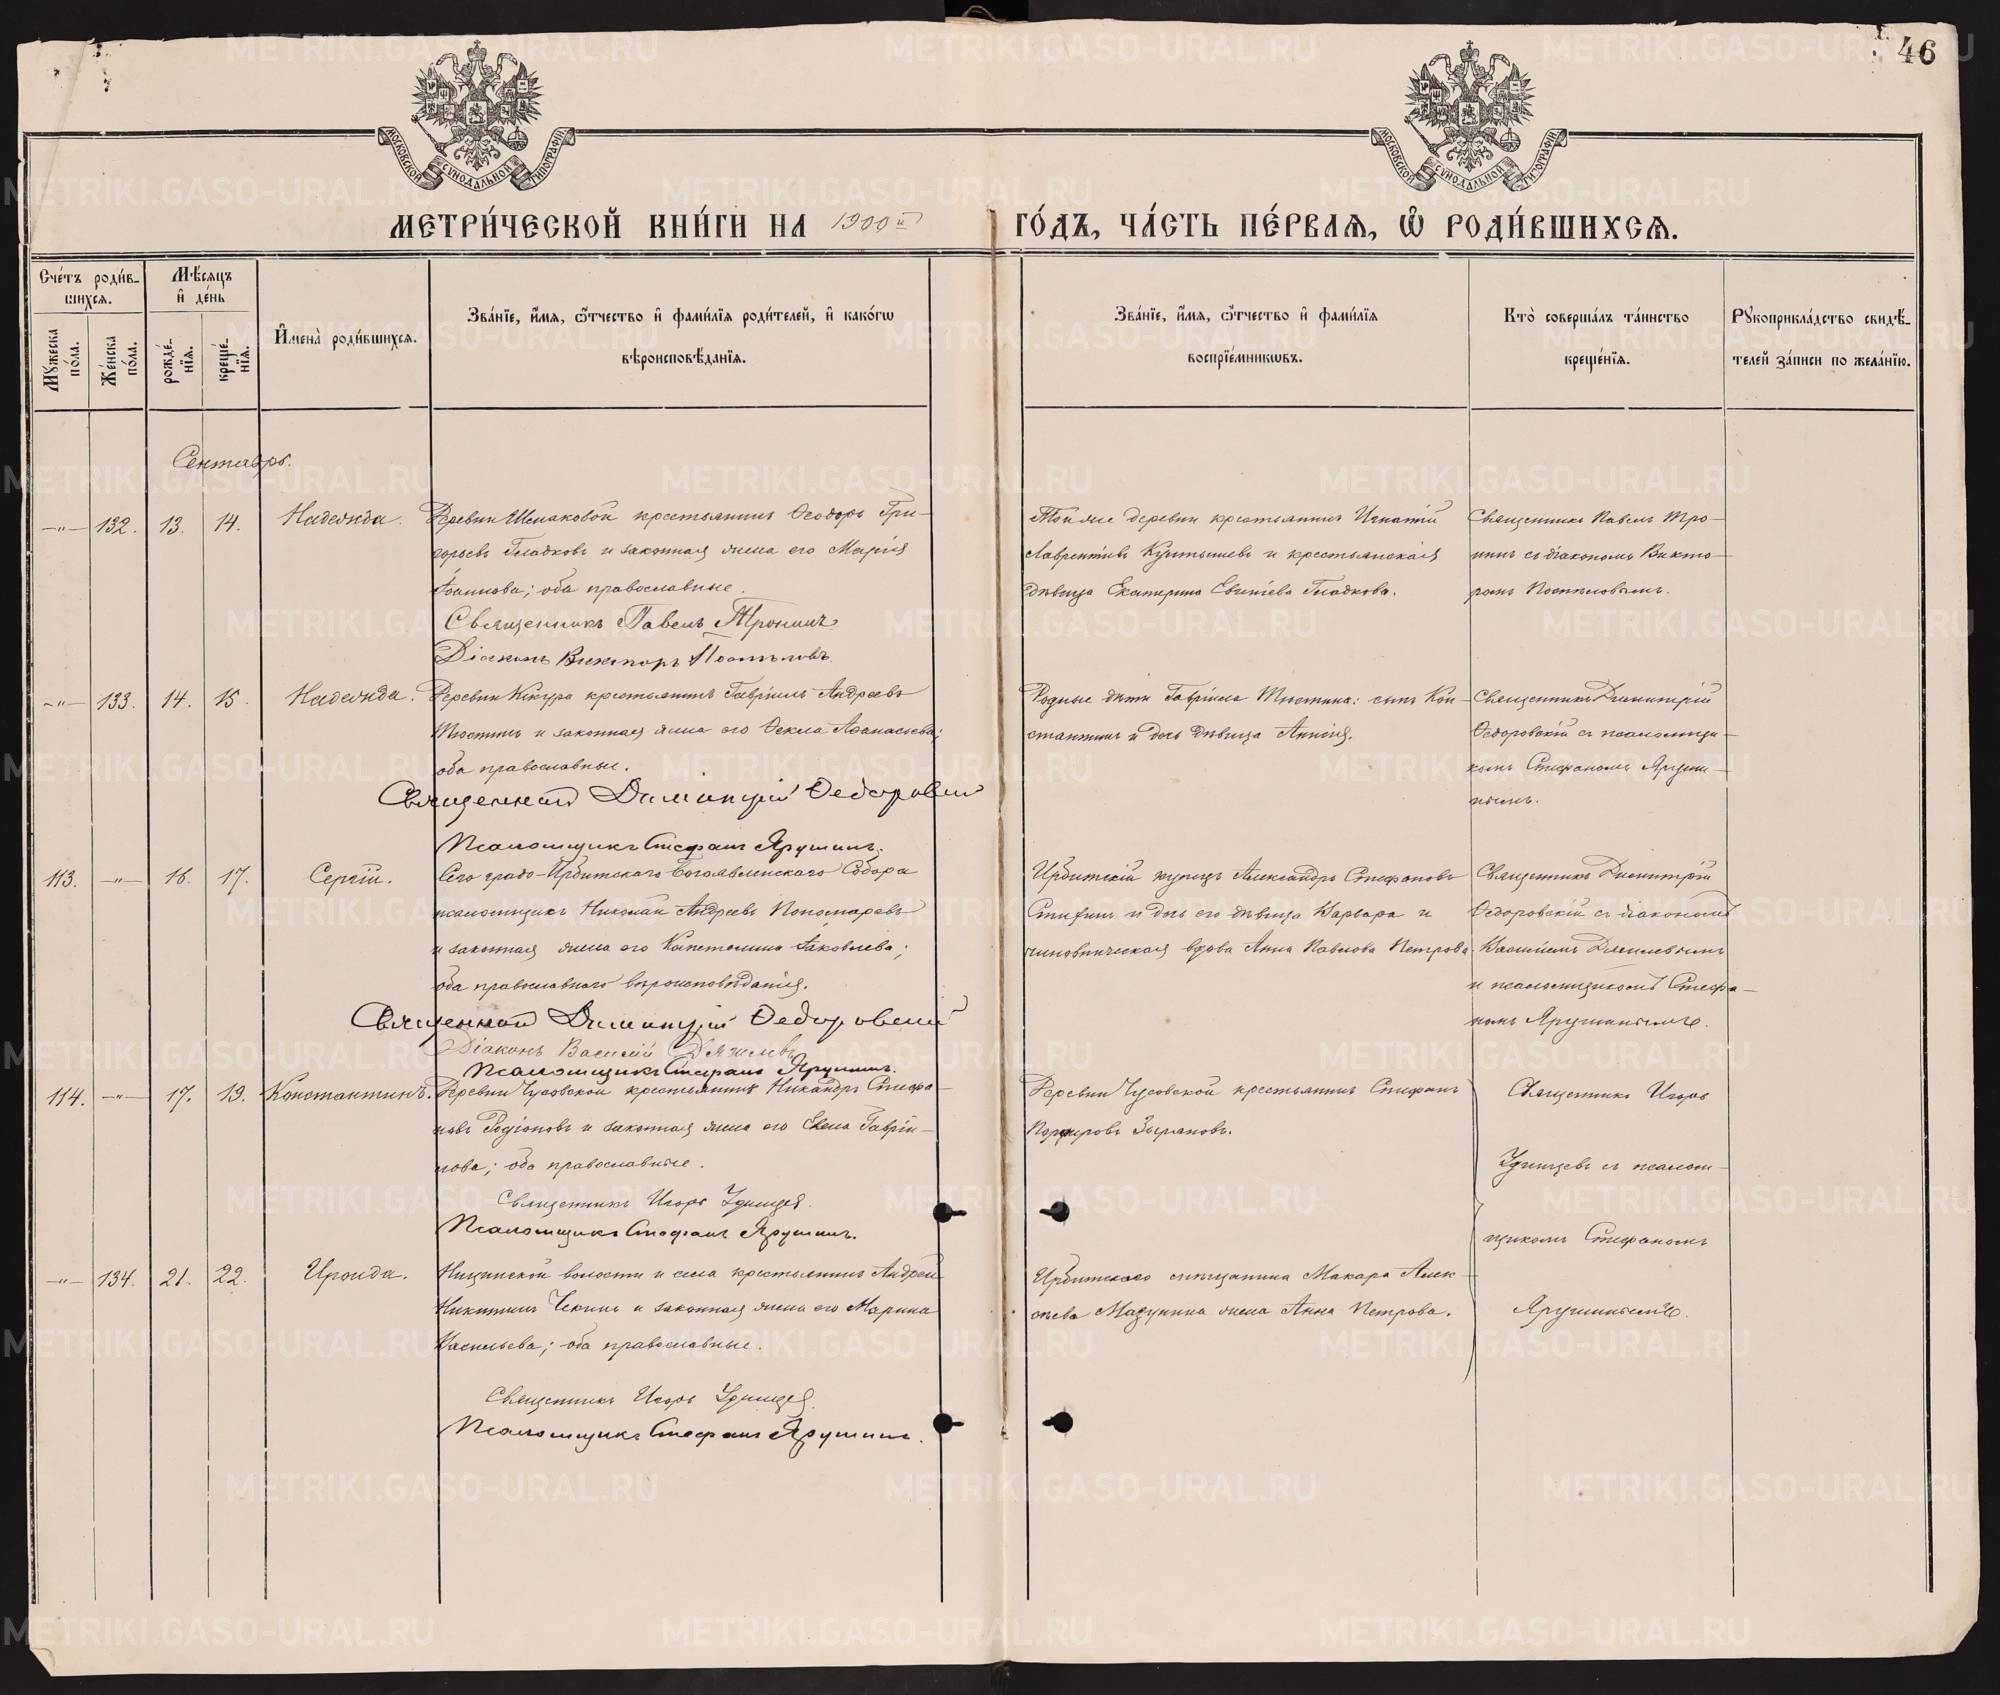 46
МОСКОВСКОЙ СѴНОДАЛЬНОЙ ТИПОГРАФІИ
МОСКОВСКОЙ СѴНОДАЛЬНОЙ ТИПОГРАФІИ
МЕТРИ́ЧЕСКОЙ КНИ́ГИ НА 1900й ГО́ДЪ, ЧА́СТЬ ПЕ́РВАѦ, Ѡ҆ РОДИ́ВШИХСѦ.
Сче́тъ роди́вшихсѧ.
Мꙋ́жеска по́ла.
Же́нска по́ла.
Мѣ́сѧцъ и҆ де́нь
рожде́нїѧ.
креще́нїѧ.
И҆мена̀ роди́вшихсѧ.
Зва́нїе, и҆́мѧ, ѻ҆́тчество и҆ фами́лїѧ роди́телей, и҆ како́гѡ
вѣроисповѣ́данїѧ.
Зва́нїе, и҆́мѧ, ѻ҆́тчество и҆ фами́лїѧ
воспрїе́мникѡвъ.
Кто̀ соверша́лъ та́инство
креще́нїѧ.
Рꙋкоприкла́дство свидѣ́-
телей за́писи по жела́нїю.
Сентябрь.
—"— 132. 13. 14. Надежда.
Деревни Шмаковой крестьянинъ Ѳеодоръ Гри-
горьевъ Гладковъ и законная жена его Марія
Іоаннова; оба православные.
Священникъ Павелъ Тронинъ
Діаконъ Викторъ Поспѣловъ
Той же деревни крестьянинъ Игнатій
Лаврентіевъ и крестьянская
дѣвица Екатерина Гладкова.
Священникъ Павелъ Тро-
нинъ съ діакономъ Викто-
ромъ Поспѣловымъ.
—"— 133. 14. 15. Надежда.
Деревни крестьянинъ Гавріилъ Андреевъ
и законная жена его Ѳекла Аѳанасьева;
оба православные.
Священникъ Димитрій Ѳедоровскій
Псаломщикъ Стефанъ Ярушинъ.
Родные дѣти Гавріила: сынъ Кон-
стантинъ и дочь дѣвица Аннія.
Священникъ Димитрій
Ѳедоровскій съ псаломщи-
комъ Стефаномъ Яруши-
нымъ.
113. —"— 16. 17. Сергій.
Сего градо-Ирбитскаго Богоявленскаго Собора
псаломщикъ Николай Андреевъ Пономаревъ
и законная жена его Капетолина Іаковлева;
оба православнаго вѣроисповѣданія.
Священникъ Димитрій Ѳедоровскій
Діаконъ Василій
Псаломщикъ Стефанъ Ярушинъ.
Ирбитскій купецъ Александръ Стефановъ
и дочь его дѣвица Варвара и
чиновническая вдова Анна Павлова Петрова
Священникъ Димитрій
Ѳедоровскій съ діакономъ
Василіемъ
и псаломщикомъ Стефа-
номъ Ярушинымъ.
114. —"— 17. 19. Константинъ.
Деревни Чусовской крестьянинъ Никандръ Стефа-
новъ Родіоновъ и законная жена его Елена Гаврі-
лова; оба православные.
Священникъ Игорь Удинцевъ.
Псаломщикъ Стефанъ Ярушинъ.
Деревни Чусовской крестьянинъ Стефанъ
Порфировъ Зыряновъ.
Священникъ Игорь
Удинцевъ съ псалом-
щикомъ Стефаномъ
Ярушинымъ.
—"— 134. 21. 22. Ираида.
Ницинской волости и села крестьянинъ Андрей
Никитинъ Чекинъ и законная жена его Марина
Васильева; оба православные.
Священникъ Игорь Удинцевъ.
Псаломщикъ Стефанъ Ярушинъ.
Ирбитскаго мѣщанина Макара Алек-
сѣева жена Анна Петрова.
METRIKI.GASO-URAL.RU